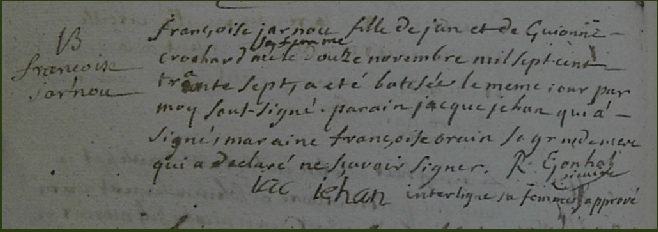 B
françoise
jarnou
françoise jarnou fille de jan et de Guionne
crochard sa femme née le douze novembre mil sept cent
trante sept, a eté batisée le meme jour par
moy sous-signé. parain jacque jehan qui a
signé, maraine françoise orain sa grandemere
qui a declaré ne scavoir signer.
jac iehan interligne sa femme, apprové